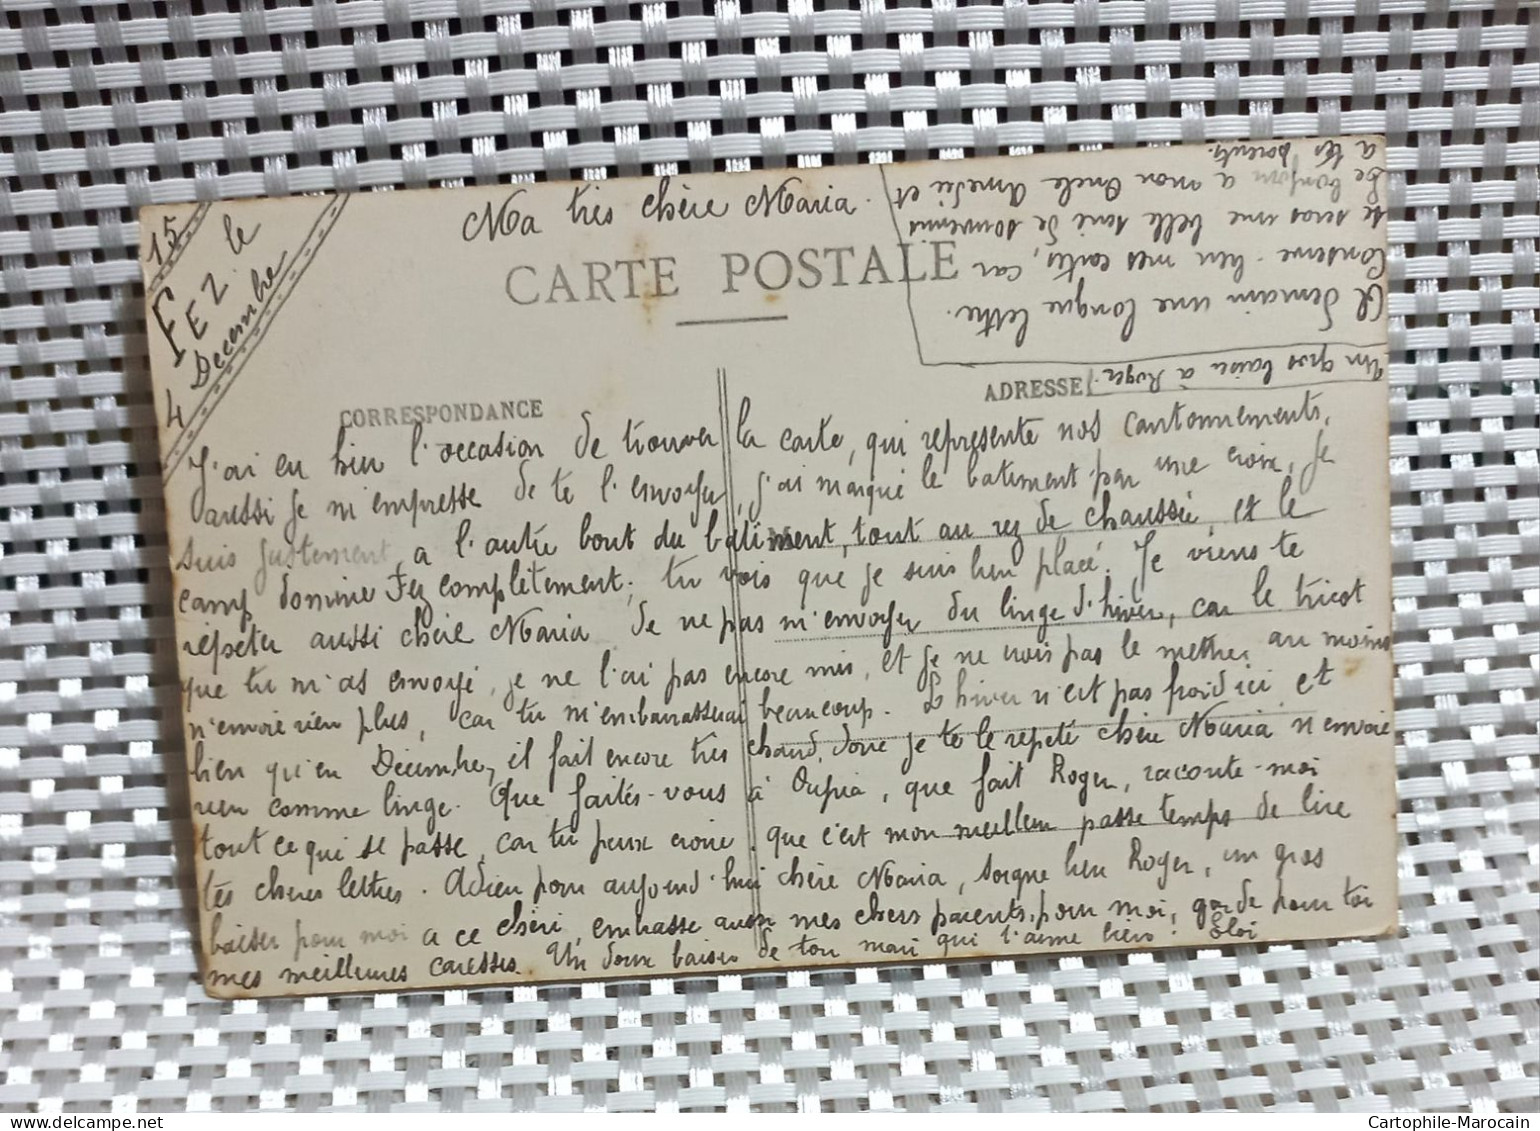 FEZ le
4 Décembre 15
Ma très chère Maria.
CARTE POSTALE
CORRESPONDANCE
ADRESSE
J'ai eu bien l'occasion de trouver la carte, qui représente nos cantonnements,
aussi je m'empresse de te l'envoyer, j'ai marqué le batiment par une croix, je
suis justement, a l'autre bout du bâtiment, tout au rez de chaussée, et le
camp domine Fez complètement; tu vois que je suis bien placé. Je viens te
répéter aussi chère Maria de ne pas m'envoyer du linge d'hiver, car le tricot
que tu m'as envoyé, je ne l'ai pas encore mis, et je ne crois pas le mettre, au moins
n'envoie rien plus, car tu m'embarrasserai beaucoup. L'hiver n'est pas froid ici, et
bien qu'en Décembre, il fait encore très chaud, donc je te le repète chère Maria n'envoie
rien comme linge. Que faites-vous à Oupia, que fait Roger, raconte-moi
tout ce qui se passe, car tu peux croire, que c'est mon meilleur passe temps de lire
tes chères lettres. Adieu pour aujourd'hui chère Maria, soigne bien Roger, un gros
baiser pour moi a ce chéri, embrasse aussi mes chers parents, pour moi, garde pour toi
mes meilleures caresses. Un doux baiser de ton mari qui t'aime bien. Eloi
Un gros baiser à Roger.
A demain une longue lettre.
Conserve-bien mes cartes, car
te seras une belle serie de souvenirs
Le bonjour a mon Oncle Amedée et
a tes parents.
Cartophile-Marocain